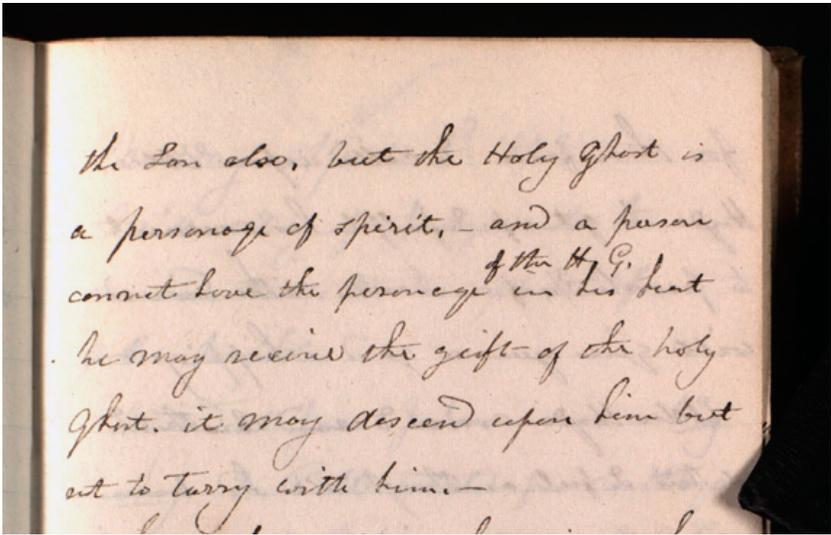 the Son also, but the Holy Ghost is
a personage of spirit, – and a person
cannot have the personage of the H. G. in his heart
he may receive the gift of the holy
Ghost. it may descend upon him but
not to tarry with him.—